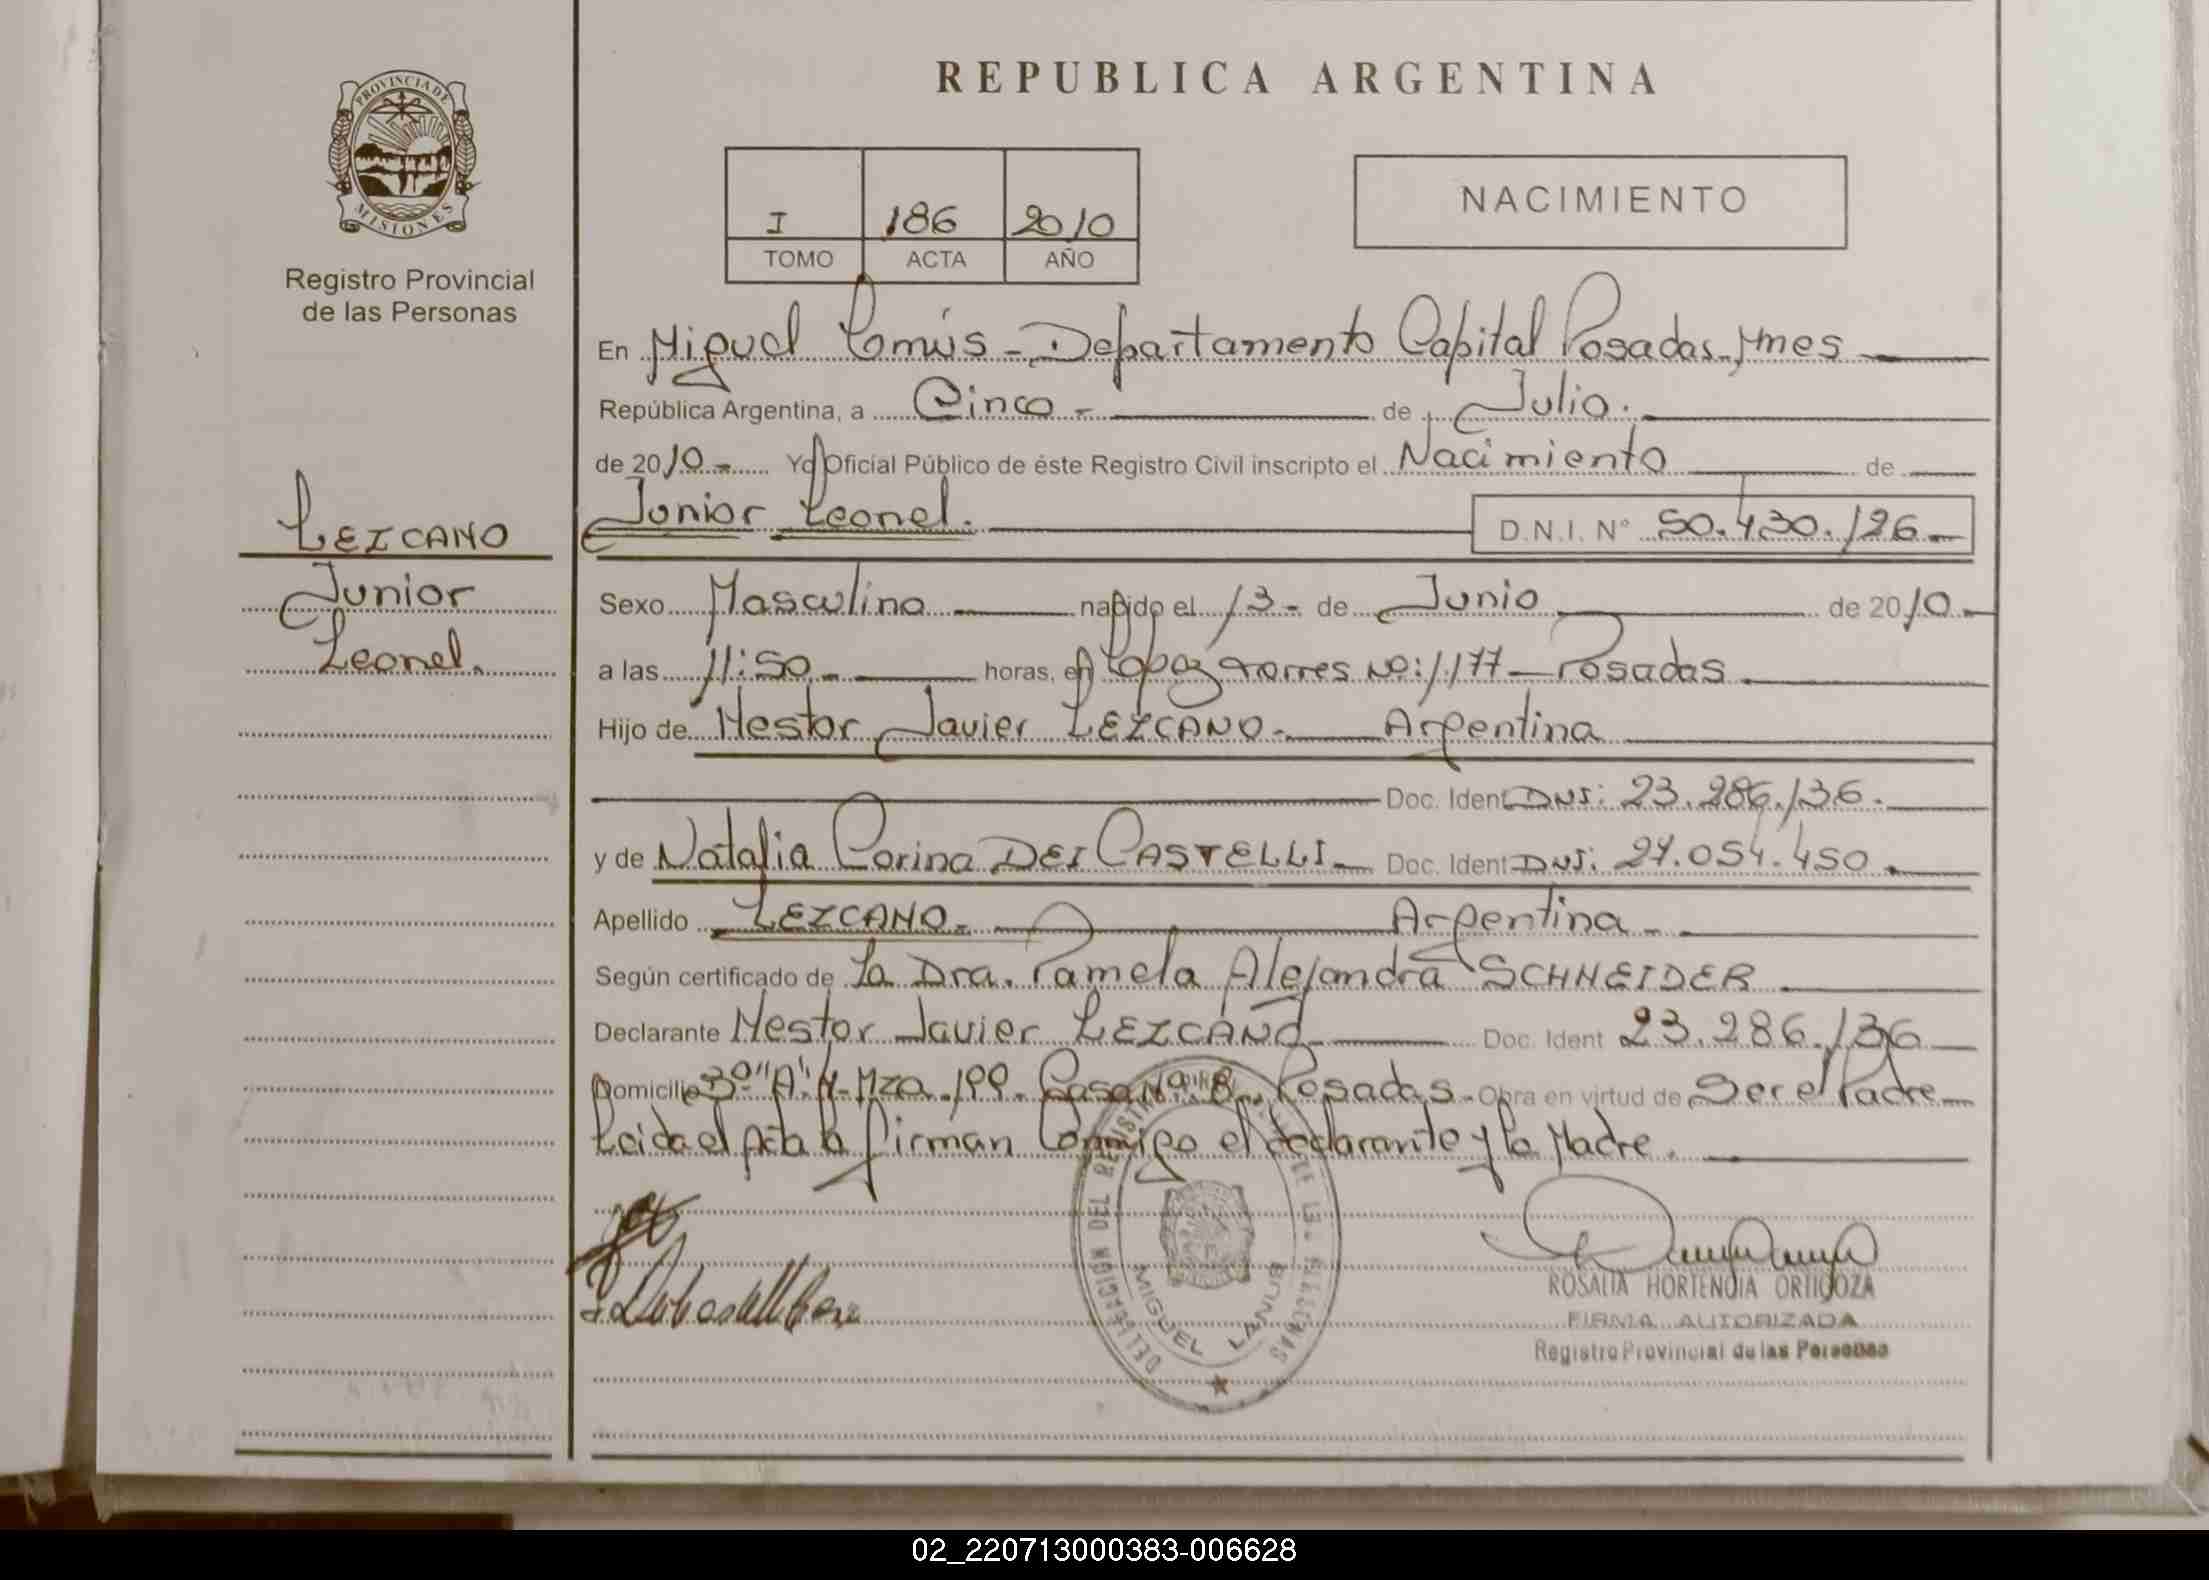 PROVINCIA DE
MISIONES
Registro Provincial
de las Personas
LEZCANO
Junior
Leonel.
REPUBLICA ARGENTINA
I 186 2010
TOMO ACTA AÑO
NACIMIENTO
En Miguel Lanús - Departamento Capital Posadas - Mnes
República Argentina, a Cinco - de Julio.
de 2010 - Yo Oficial Público de éste Registro Civil inscripto el Nacimiento de
Junior Leonel. D.N.I. N° 50.430.126 -
Sexo Masculino nacido el 13 - de Junio de 2010 -
a las 11:50 - horas, en Lopez torres No: 1177 - Posadas
Hijo de Nestor Javier LEZCANO - Argentina
Doc. Ident DNI: 23.286.136.
y de Natalia Corina DEI CASTELLI - Doc. Ident DNI: 27.054.450.
Apellido LEZCANO - Argentina -
Según certificado de La Dra. Pamela Alejandra SCHNEIDER
Declarante Nestor Javier LEZCANO Doc. Ident 23.286.136
Domicilio 3° "A" 4 - Mza. 199. Casa N° 8. Posadas. Obra en virtud de Ser el Padre
Leida el Acta la firman Conmigo el declarante y la Madre.
DELEGACION DEL REGISTRO PROVINCIAL DE LAS PERSONAS
MIGUEL LANUS
ROSALIA HORTENCIA ORTIGOZA
FIRMA AUTORIZADA
Registro Provincial de las Personas
02_220713000383-006628